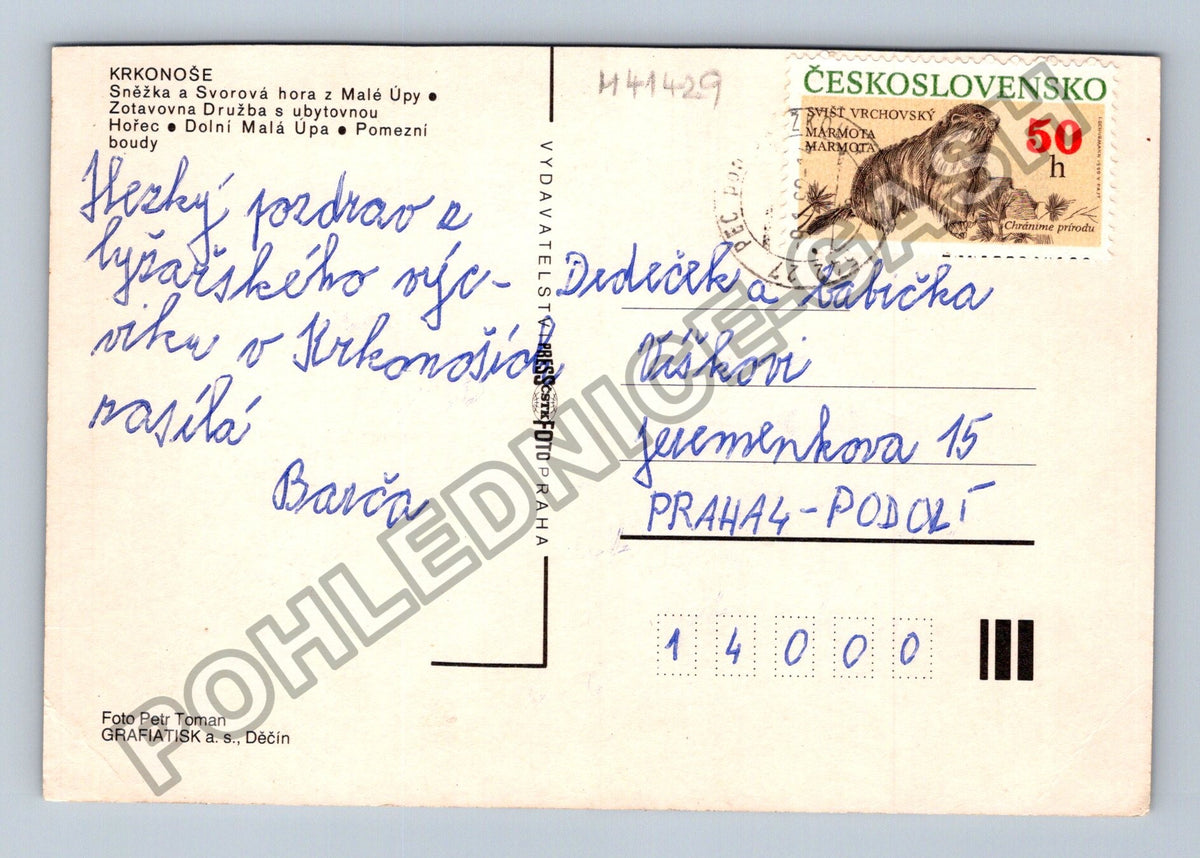 KRKONOŠE
Sněžka a Svorová hora z Malé Úpy ●
Zotavovna Družba s ubytovnou
Hořec ● Dolní Malá Úpa ● Pomezní
boudy
Hezký pozdrav z
lyžařského výc-
viku v Krkonoších
zasílá
Barča
Foto Petr Toman
GRAFIATISK a. s., Děčín
VYDAVATELSTVÍ PRESSFOTO PRAHA
ČSTK
H41429
ČESKOSLOVENSKO
SVIŠŤ VRCHOVSKÝ
MARMOTA
MARMOTA
50
h
Chráníme prírodu
PEC POD
27
Dedeček a babička
Víškovi
Jeremenkova 15
PRAHA 4 - PODOLÍ
1 4 0 0 0
POHLEDNICE-GASH